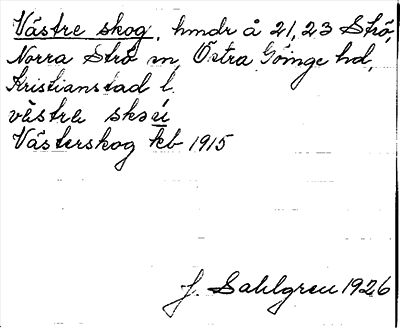 Västre skog, hmdr å 21,23 Strö,
Norra Strö sn, Östra Göinge hd,
Kristianstad l.
västre skoú
Västerskog kb 1915
J. Sahlgren 1926